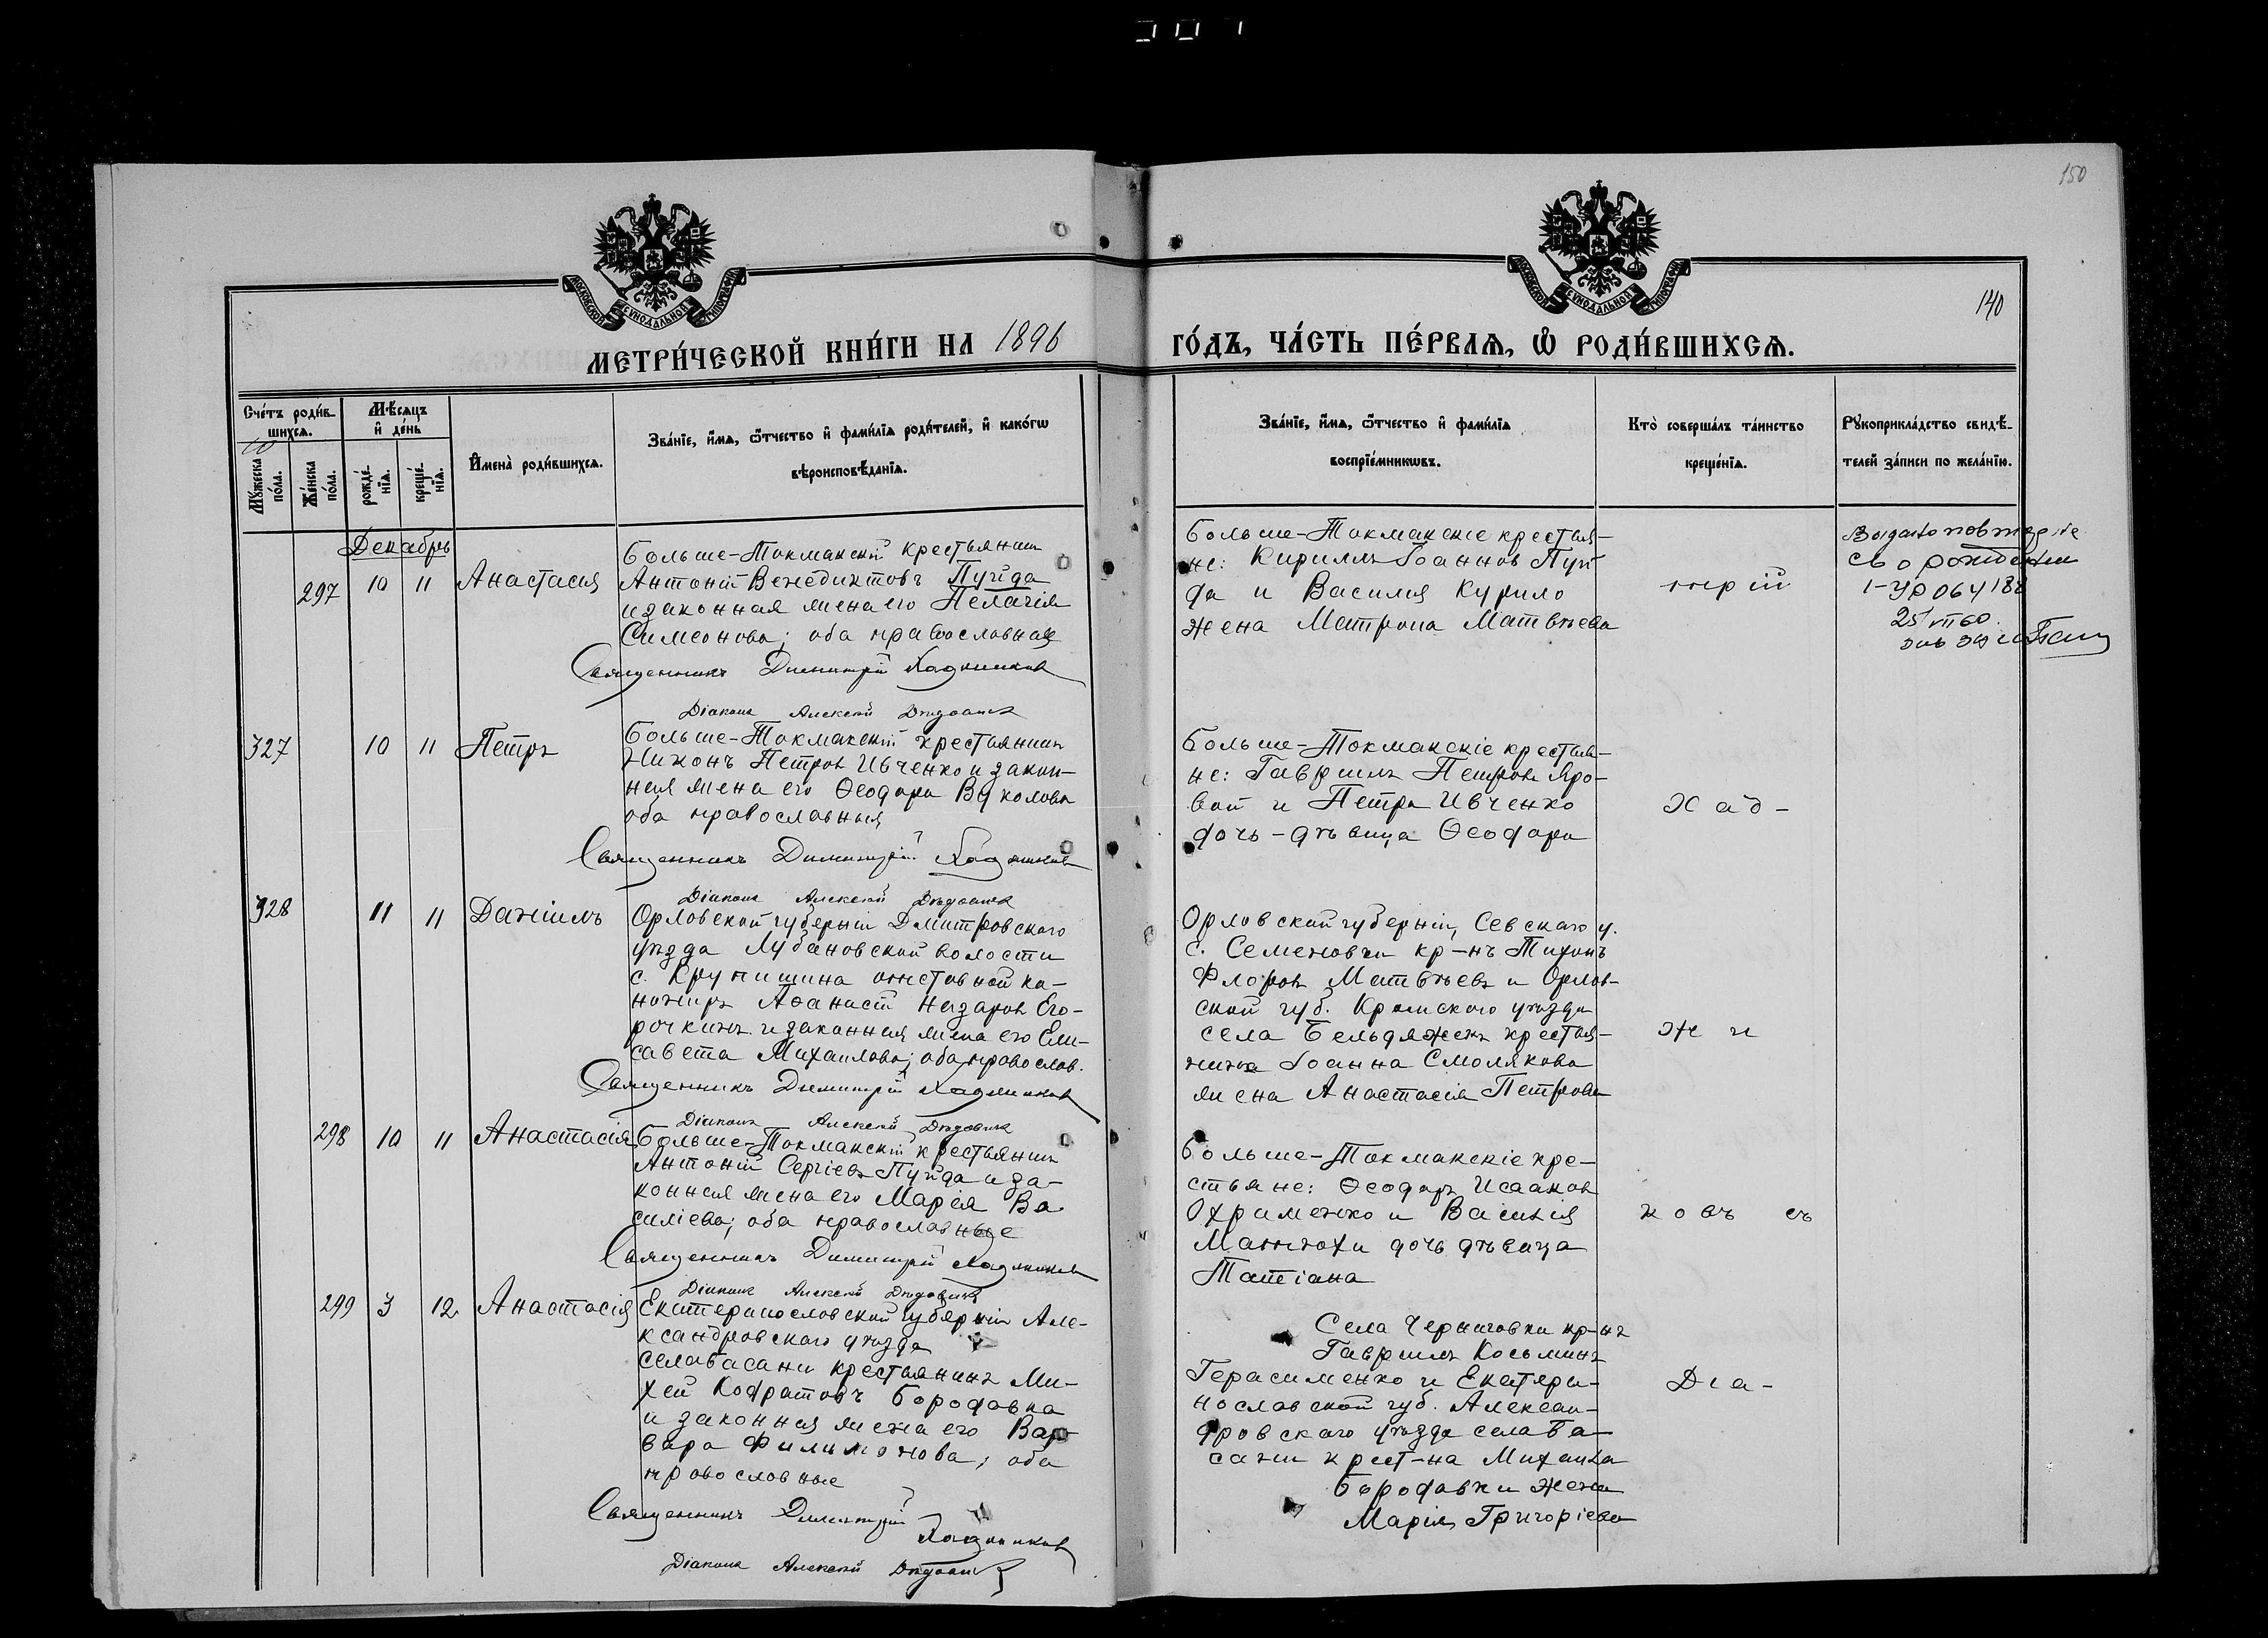 150
140
МЕТРИ́ЧЕСКОЙ КНИ́ГИ НА 1896
ГО́ДЪ, ЧА́СТЬ ПЕ́РВАѦ, Ѡ РОДИ́ВШИХСѦ.
Сче́тъ роди́в-
шихсѧ.
Мꙋ́жеска по́ла.
Же́нска по́ла.
Мѣ́сѧцъ и҆ де́нь
рожде́-нїѧ.
креще́-нїѧ.
И҆мена̀ роди́вшихсѧ.
Зва́нїе, и҆́мѧ, ѻ҆́тчество и҆ фами́лїѧ роди́телей, и҆ како́гѡ
вѣроисповѣ́данїѧ.
Зва́нїе, и҆́мѧ, ѻ҆́тчество и҆ фами́лїѧ
воспрїе́мникѡвъ.
Кто̀ соверша́лъ та́инство
креще́нїѧ.
Рꙋкоприкла́дство свидѣ́-
телей за́писи по жела́нїю.
Декабрь
297 10 11 Анастасия
Больше-Токмакскій крестьянинъ
Антоній Венедиктовъ Пугда
и законная жена его Пелагія
Симеонова; оба православные
Священникъ Димитрій Хаджиновъ
Діаконъ Алексій
Больше-Токмакскіе крестья-
не: Кириллъ Іоаннов Пуг
да и Василия Курило
жена Матрона Матвѣева
трій
св о рождении
064188
25 VII 60
327 10 11 Петръ
Больше-Токмакскій крестьянинъ
Никонъ Петров Ивченко и закон-
ная жена его Ѳеодора Вуколова
оба православныя
Священникъ Димитрій Хаджиновъ
Діаконъ Алексій
Больше-Токмакскіе крестья-
не: Гавриилъ Петровъ Яро-
вой и Петра Ивченко
дочь-дѣвица Ѳеодора
Хад-
328 11 11 Даніилъ
Орловской губерніи Дмитровскаго
уѣзда Лубановской волости
с. Крупишина отставной ка-
нониръ Аѳанасій Назаров Его-
рочкинъ и законная жена его Ели-
савета Михаилова; оба правослов.
Священникъ Димитрій Хаджиновъ
Діаконъ Алексій
Орловской губерніи, Севскаго у.
с. Семеновки кр-нъ Тихонъ
Флоровъ Матвѣевъ и Орлов-
ской губ. Кромскаго уѣзда
села Бельдяжекъ крестья-
нина Іоанна Смолякова
жена Анастасія Петрова
жи
298 10 11 Анастасія
Больше-Токмакскій крестьянинъ
Антоній Сергіевъ Пугда и за-
конная жена его Марія Ва-
силіева; оба православные
Священникъ Димитрій Хаджиновъ
Діаконъ Алексій
Больше-Токмакскіе кре-
стьяне: Ѳеодоръ Исааков
Охрименко и Василія
Матюхи дочь дѣвица
Татіана
новъ съ
299 3 12 Анастасія
Екатеринославской губерніи Але-
ксандровскаго уѣзда
села Басани крестьянинъ Ми-
хей Кодратовъ Бородавка
и законная жена его Вар-
вара Филимонова; оба
православные
Священникъ Димитрій
Хаджиновъ
Діаконъ Алексій
Села Черниговки кр-нъ
Гавриилъ Косьминъ
Герасименко и Екатери-
нославской губ. Алексан-
дровскаго уѣзда села Ба-
сани крест-на Михаила
Бородавки жена
Марія Григоріева
Діа-